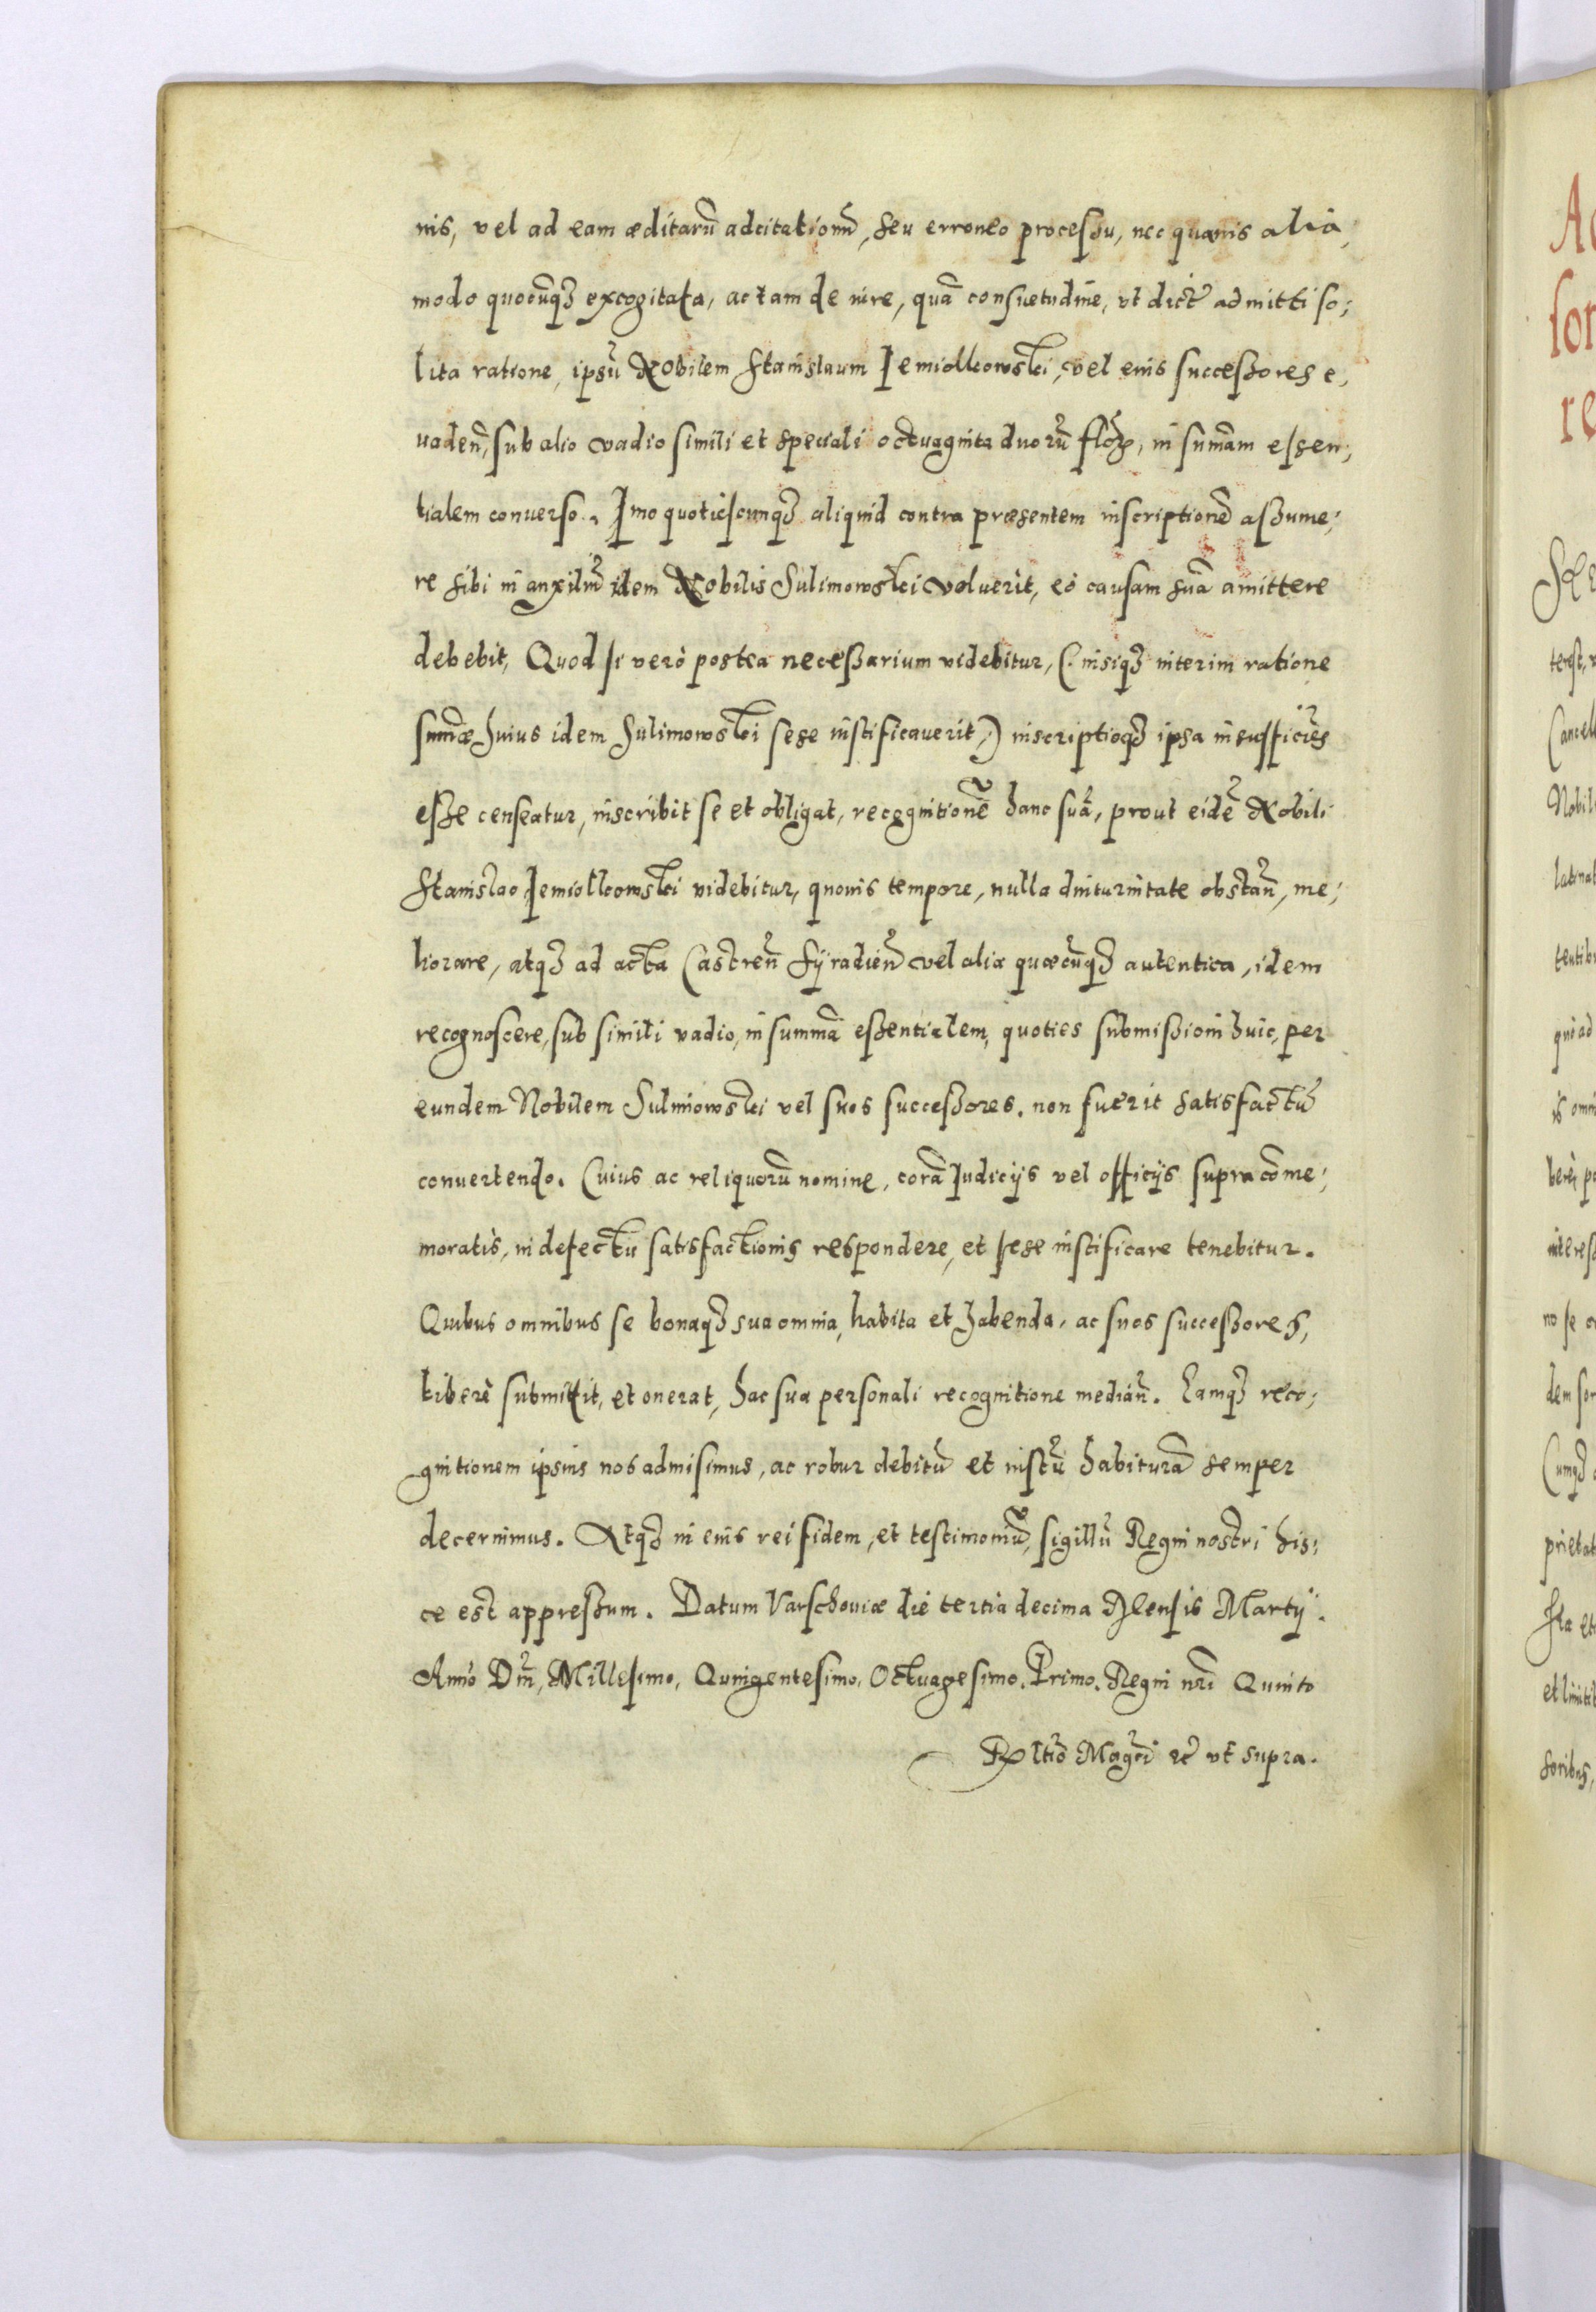 nis, vel ad eam æditarũ adcitationũ, seu erroneo processu, nec quavis alia,
modo quocũq₃ excogitata, ac tam de iure, quã consuetudine, vt dict̃ admitti so;
lita ratione, ipsũ Nobilem Stanislaum Jemiolkowski, vel eius successores e,
uaden̄, sub alio vadio simili et speciali octuaginta duorũ flor̃, in sum̄am essen;
tialem conuerso. Imo quotiescunq₃ aliquid contra præsentem inscriptionē assume;
re sibi in auxiliũ idem Nobilis Sulimowski voluerit, eò causam suã amittere
debebit, Quod si verò postea necessarium videbitur, (: nisiq₃ interim ratione
sum̄æ huius idem Sulimowski sese iustificauerit,) inscriptioq₃ ipsa insufficiẽs
esse censeatur, inscribit se et obligat, recognitionẽ hanc suã, prout eidẽ Nobili
Stanislao Jemiolkowski videbitur, quouis tempore, nulla diuturnitate obstañ, me;
liorare, atq₃ ad acta Castreñ Syradieñ vel alia quæcũq₃ autentica, idem
recognoscere, sub simili vadio, in summã essentialem, quoties submissioni huic, per
eundem Nobilem Sulimowski vel suos successores. non fuerit satisfactũ
conuertendo. Cuius ac reliquorũ nomine, corã Judicijs vel officijs supra com̄e;
moratis, in defectu satisfactionis respondere, et sese iustificare tenebitur.
Quibus omnibus se bonaq₃ sua omnia, habita et habenda, ac suos successores,
liberè submittit, et onerat, hac sua personali recognitione mediañ. Eamq₃ reco;
gnitionem ipsius nos admisimus, ac robur debitũ et iustũ habiturã semper
decernimus. Atq₃ in eius rei fidem, et testimoniũ, sigillũ Regni nostri his;
ce est appressum. Datum Varschouiæ die tertia decima Mensis Martij.
Anno Dñi, Millesimo, Quingentesimo, Octuagesimo, Primo. Regni nr̃i Quinto
Rltiõ Magcĩ etc̃ vt supra.